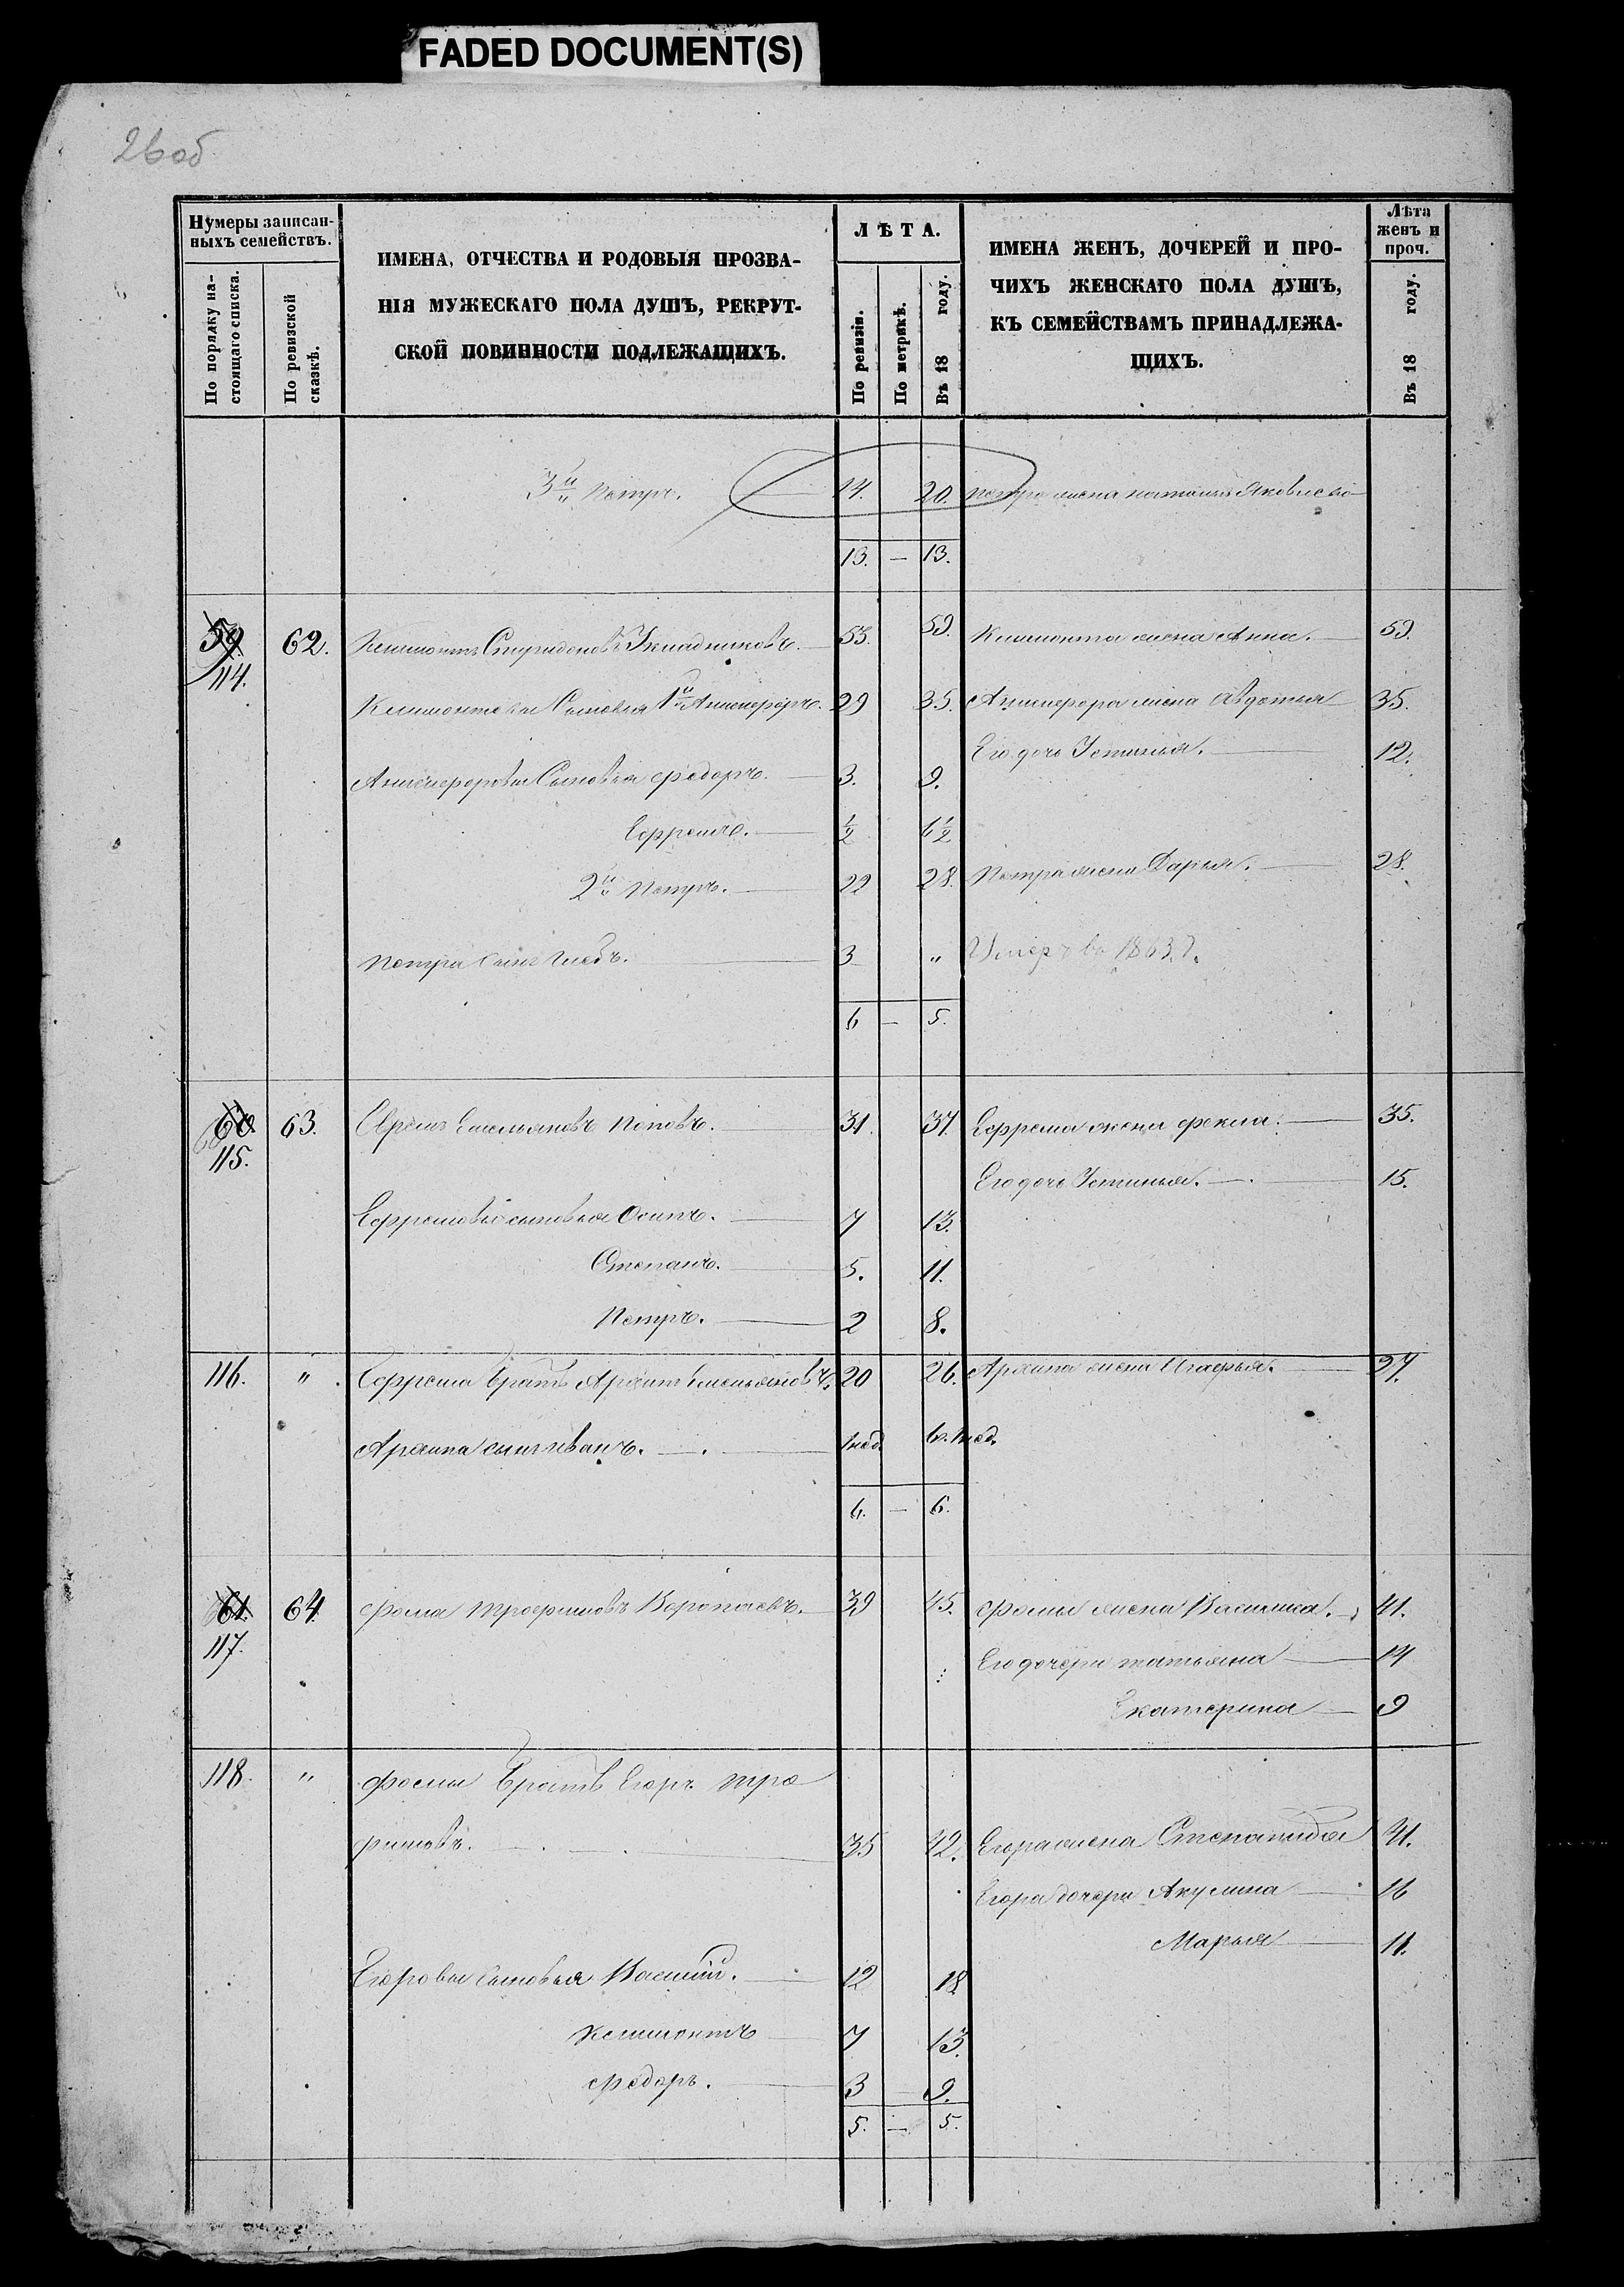 FADED DOCUMENT(S)
26 об
Нумеры записан-
ныхъ семействъ.
По порядку на-
стоящаго списка.
По ревизской
сказкѣ.
ИМЕНА, ОТЧЕСТВА И РОДОВЫЯ ПРОЗВА-
НІЯ МУЖЕСКАГО ПОЛА ДУШЪ, РЕКРУТ-
СКОЙ ПОВИННОСТИ ПОДЛЕЖАЩИХЪ.
ЛѢТА.
По ревизіи.
По метрикѣ.
Въ 18 году.
ИМЕНА ЖЕНЪ, ДОЧЕРЕЙ И ПРО-
ЧИХЪ ЖЕНСКАГО ПОЛА ДУШЪ,
КЪ СЕМЕЙСТВАМЪ ПРИНАДЛЕЖА-
ЩИХЪ.
Лѣта
женъ и
проч.
Въ 18 году.
3й Петръ. 14. 20. Петра жена
13. — 13.
59. 62. Климонтъ Спиридоновъ 53. 59. Климонта жена Анна. 59.
114.
Климонтовы Сыновья 1й Аникифоръ. 29 35. Аникифора жена Авдотья 35.
Его дочь Устинья. 12.
Аникифоровы Сыновья Федоръ. 3. 9.
Ефремъ. 1/2 6 1/2
2й Петръ. 22 28. Петра жена Дарья. 28.
Петра Сынъ Глебъ. 3 " Умеръ въ 1863 г.
6 — 5.
60. 63. Ефремъ Емельяновъ Поповъ. 31. 37. Ефрема жена Фекла. 35.
115.
Его дочь Устинья. 15.
Ефремовы сыновья Осипъ. 7 13.
Степанъ. 5. 11.
Петръ. 2 8.
116. " Ефрема братъ Архипъ Емельяновъ. 20 26. Архипа жена Агафья. 27.
Архипа сынъ Иванъ. 1 нед. 6. 1 нед.
6. — 6.
61. 64. Фома Трофимовъ Воропаевъ. 39 45. Фомы жена Василиса. 41.
117.
Его дочери Татьяна 14
Екатерина 9
118. " Фомы братъ Егоръ Тро
фимовъ. 35 42. Егора жена Степанида 41.
Егора дочери Акулина 16
Марья 11.
Егоровы Сыновья Василій. 12 18
Климонтъ 7 13.
Федоръ. 3 9.
5. — 5.